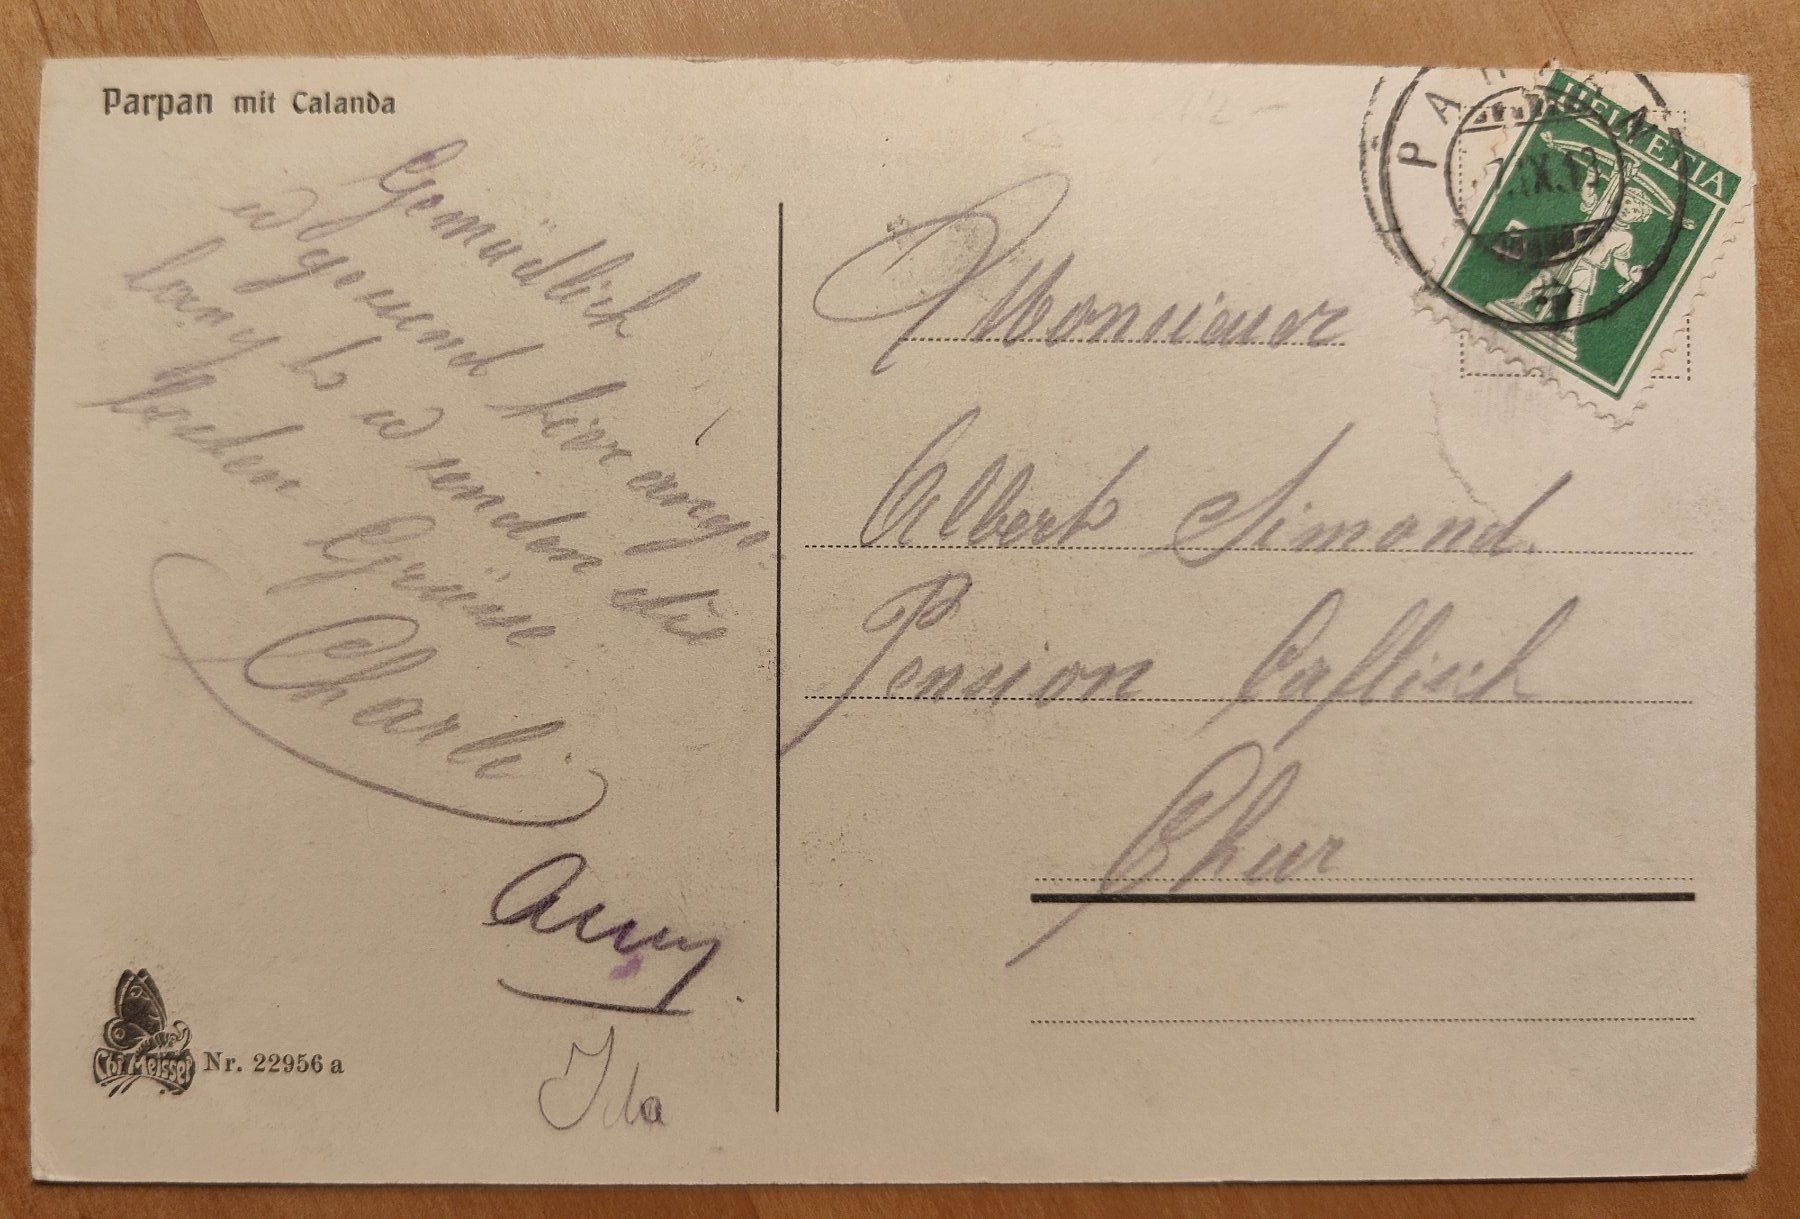 Parpan mit Calanda
Gemüdlich
u gesund hier ange-
langt u senden die
besten Grüsse
Charli
Anny.
Ida
Chr. Meisser
Nr. 22956 a
HELVETIA
IX.13
Monsieur
Albert Simond.
Pension Caflisch
Chur